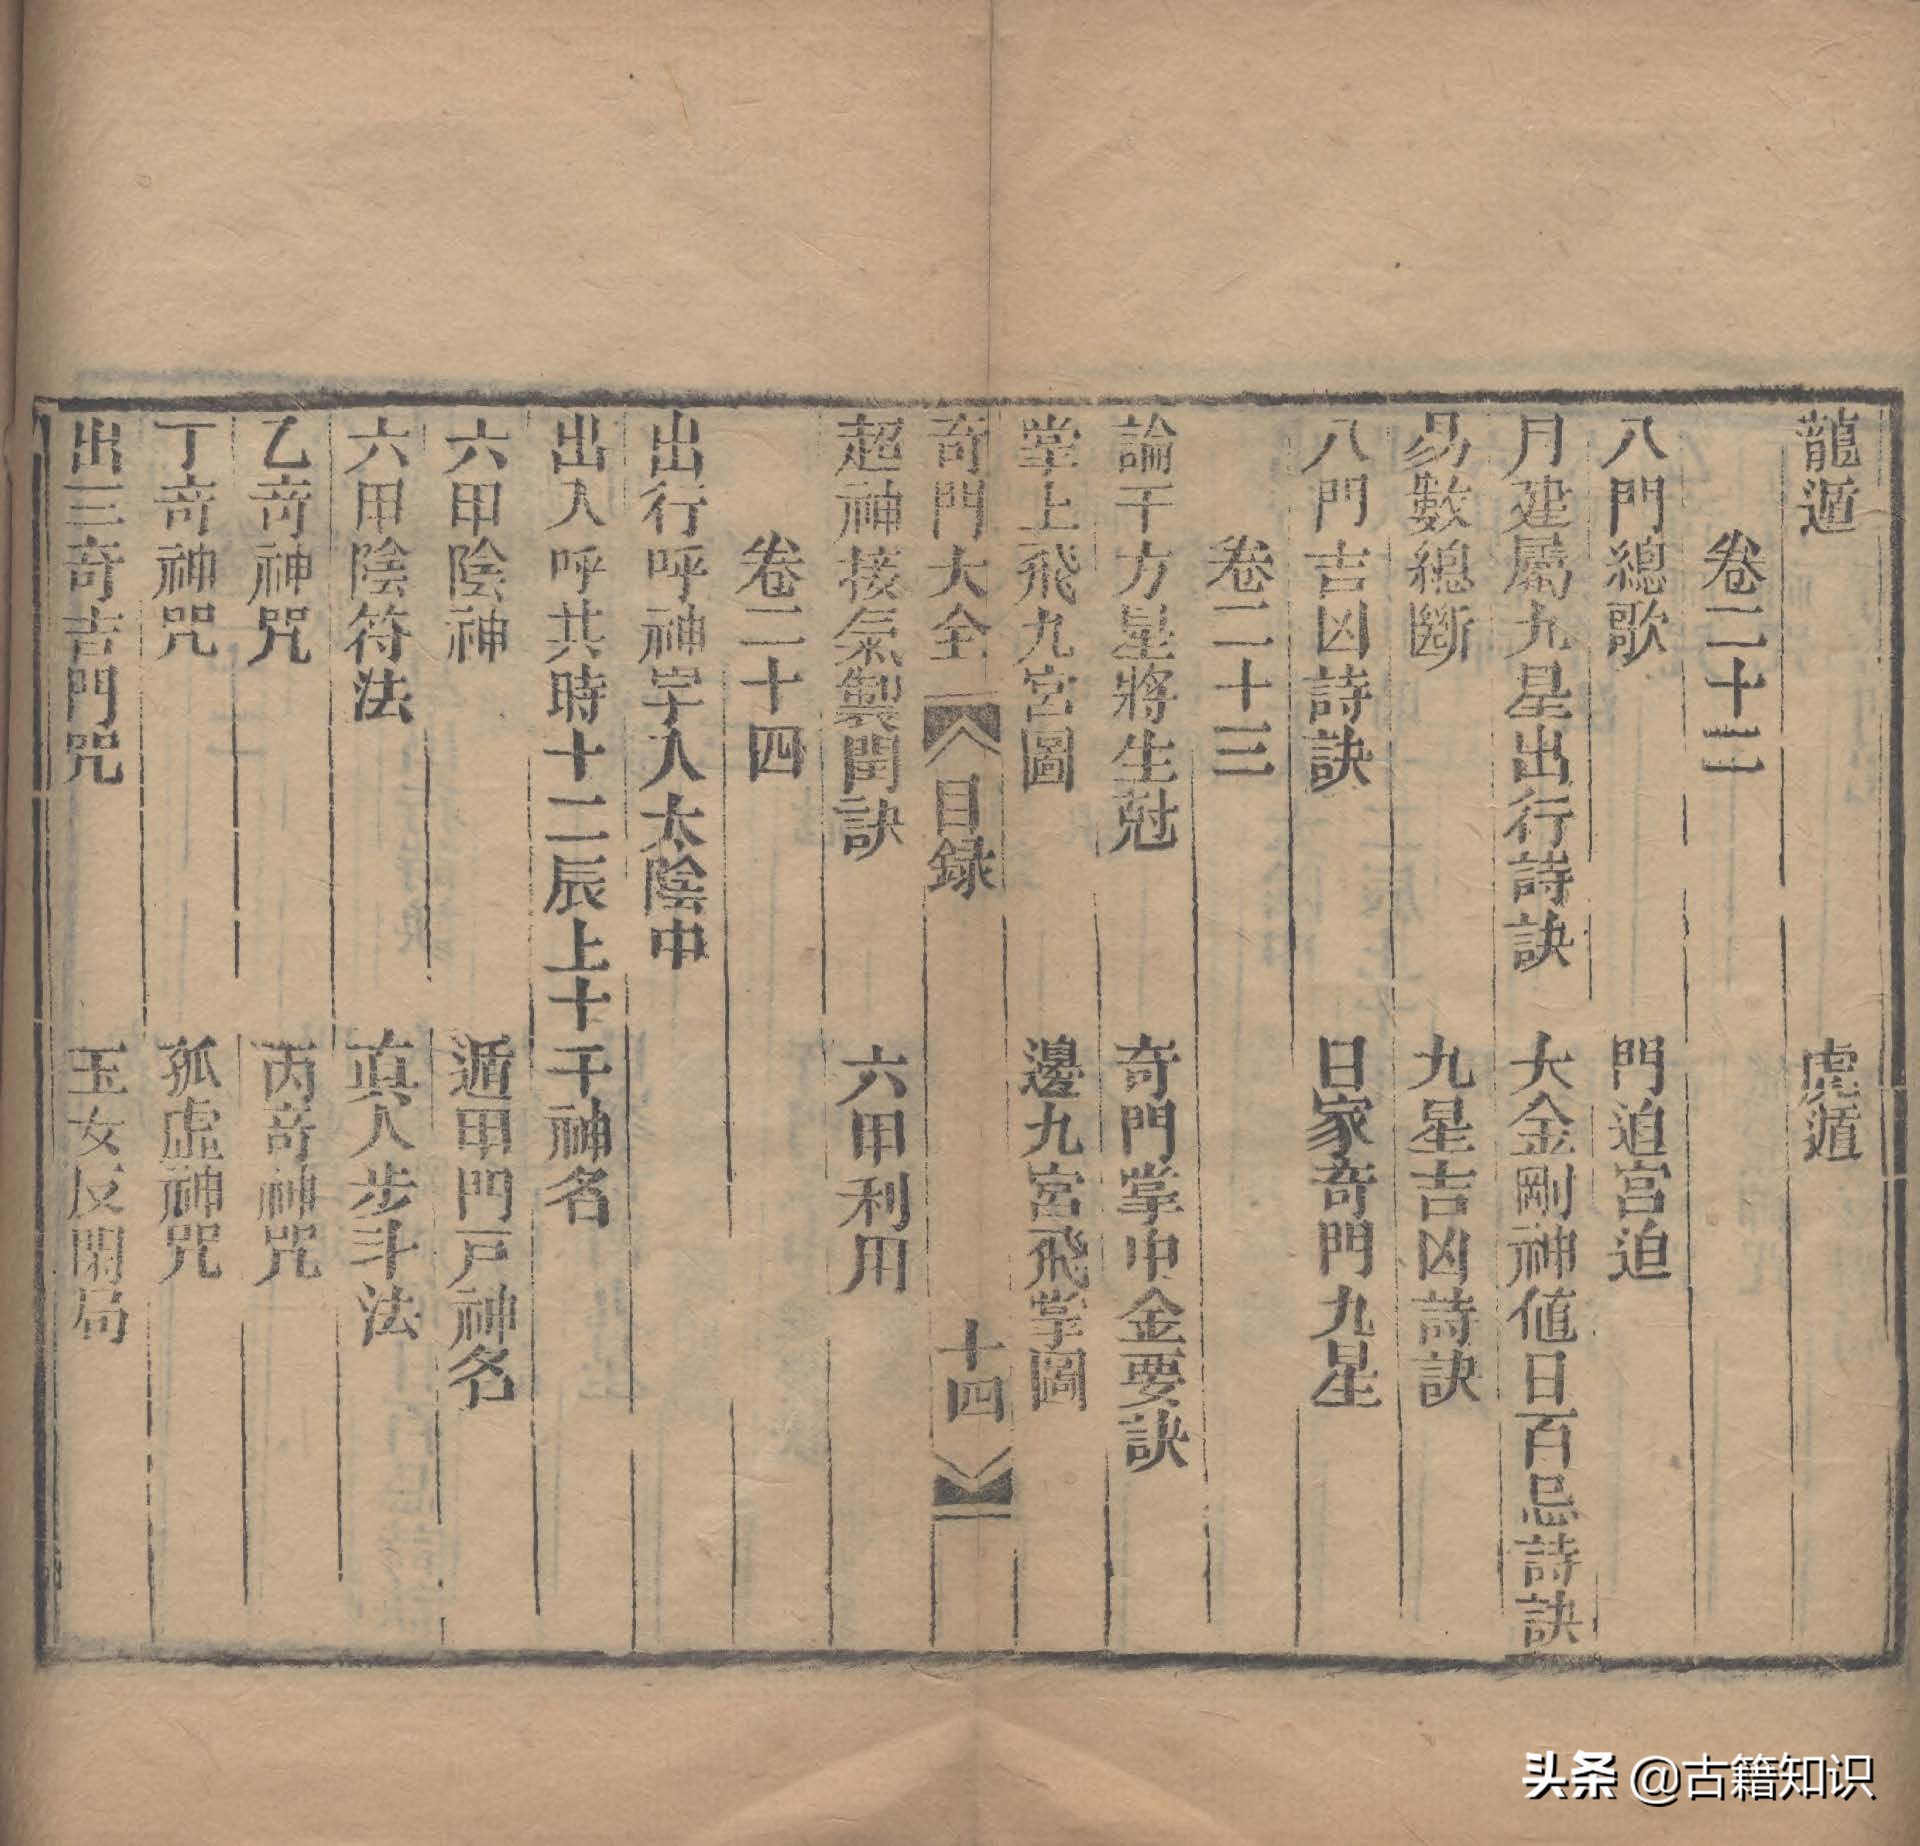 龍遁　虎遁
卷二十二
八門總歌　門迫宮迫
月建屬九星出行詩訣　大金剛神値日百忌詩訣
易數總斷　九星吉凶詩訣
八門吉凶詩訣　日家奇門九星
卷二十三
論干方星將生尅　奇門掌中金要訣
掌上飛九宮圖　邊九宮飛掌圖
奇門大全　目録　十四
超神接氣製閏訣　六甲利用
卷二十四
出行呼神字入太陰中
出入呼共時十二辰上十干神名
六甲陰神　遁甲門戸神名
六甲陰符法　眞人步斗法
乙奇神咒　丙奇神咒
丁奇神咒　孤虛神咒
出三奇吉門咒　玉女反閉局
头条 @古籍知识